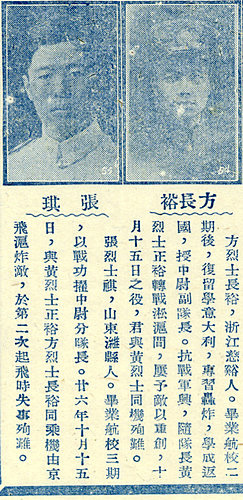 54
55
方長裕
方烈士長裕，浙江慈谿人。畢業航校二
期後，復留學意大利，專習轟炸，學成返
國，授中尉副隊長。抗戰軍興，隨隊長黃
烈士正裕轉戰淞滬間，屢予敵以重創，十
月十五日之役，君與黃烈士同機殉難。
張琪
張烈士麒，山東濰縣人。畢業航校三期
，以戰功擢中尉分隊長。廿六年十月十五
日，與黃烈士正裕方烈士長裕同乘機由京
飛滬炸敵，於第二次起飛時失事殉難。